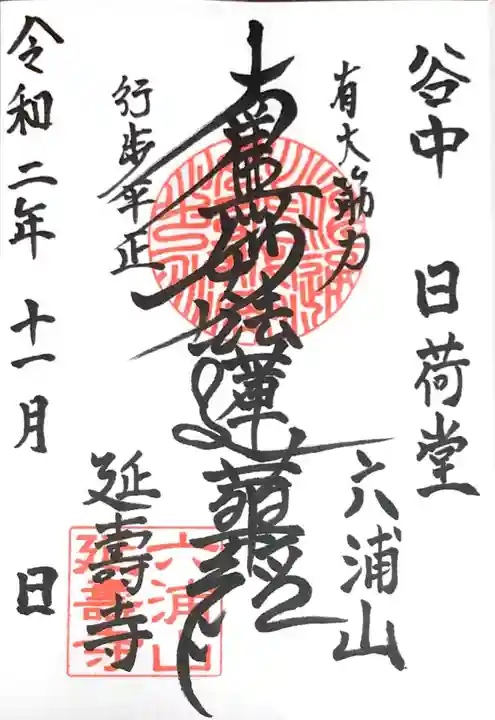 谷中 日荷堂
有大筋力
六浦山
南無妙法蓮華経
行歩平正
延壽寺
令和二年 十一月 日
六浦山
延壽寺